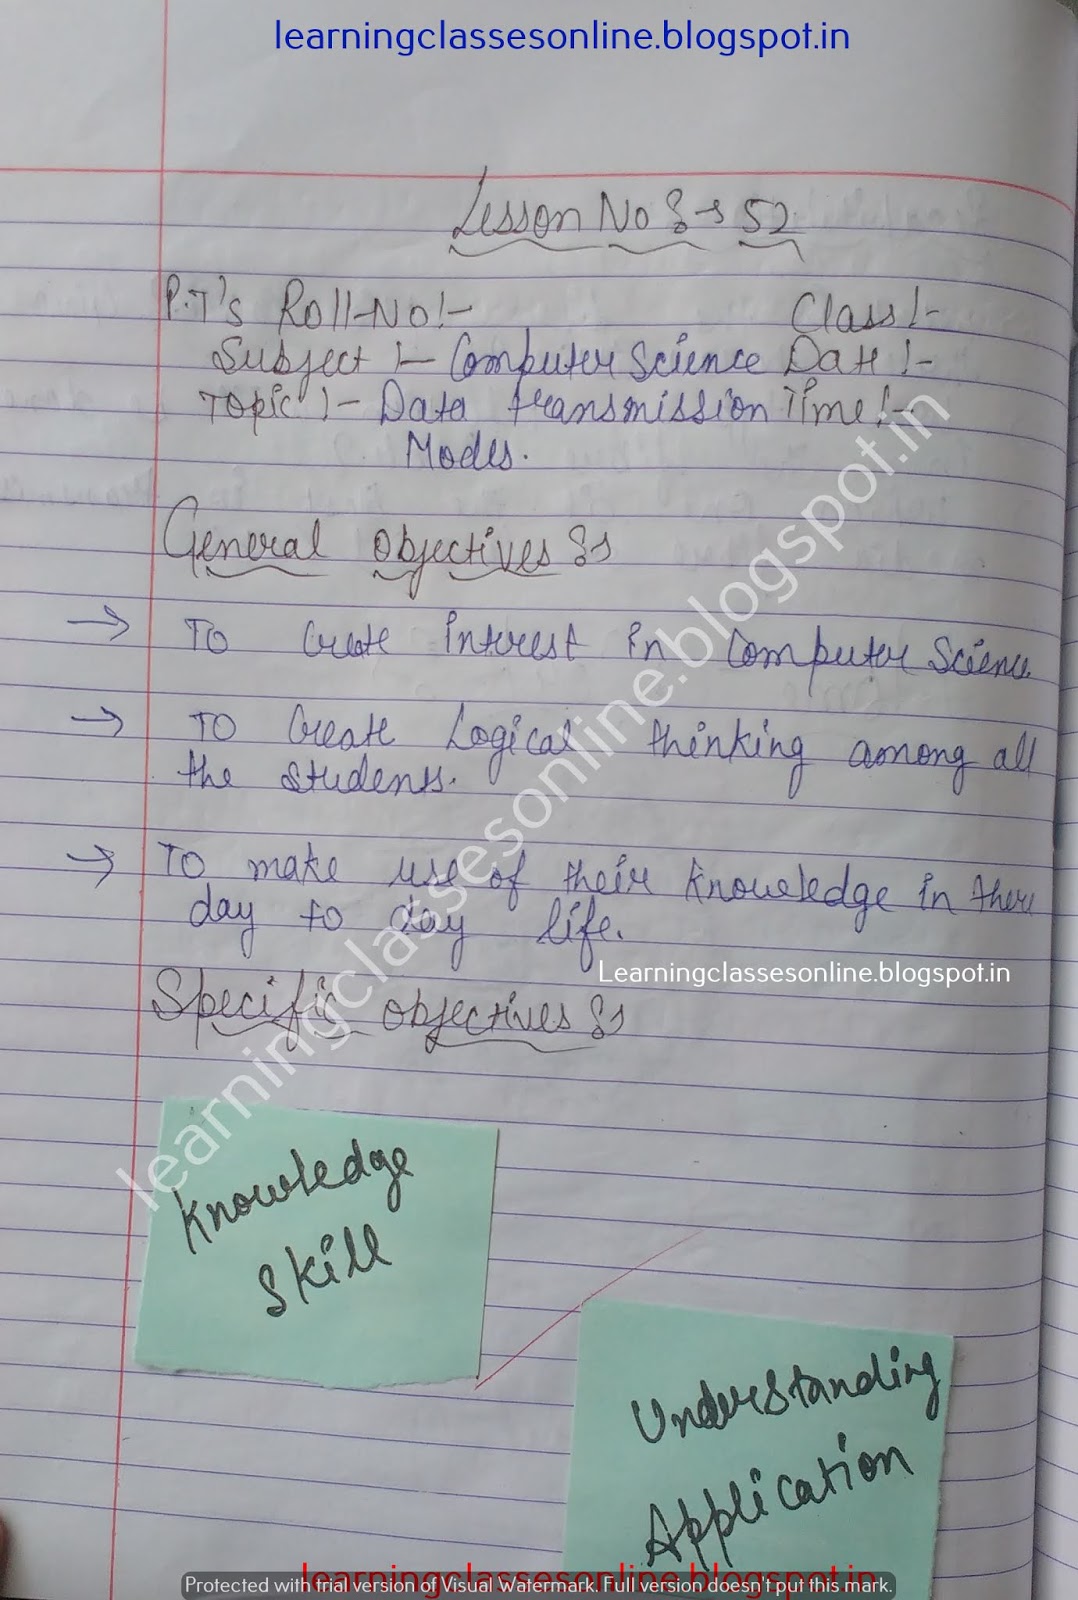 learningclassesonline.blogspot.in
Lesson No :- 52
P.T's Roll-No!- Class!-
Subject !- Computer Science Date !-
Topic !- Data transmission Time!-
Modes.
General objectives :-
→ To Create interest in Computer Science
→ To Create Logical thinking among all
the students.
→ To make use of their knowledge in there
day to day life.
Learningclassesonline.blogspot.in
Specific objectives :-
learningclassesonline.blogspot.in
Knowledge
Skill
Understanding
Application
learningclassesonline.blogspot.in
Protected with trial version of Visual Watermark. Full version doesn't put this mark.